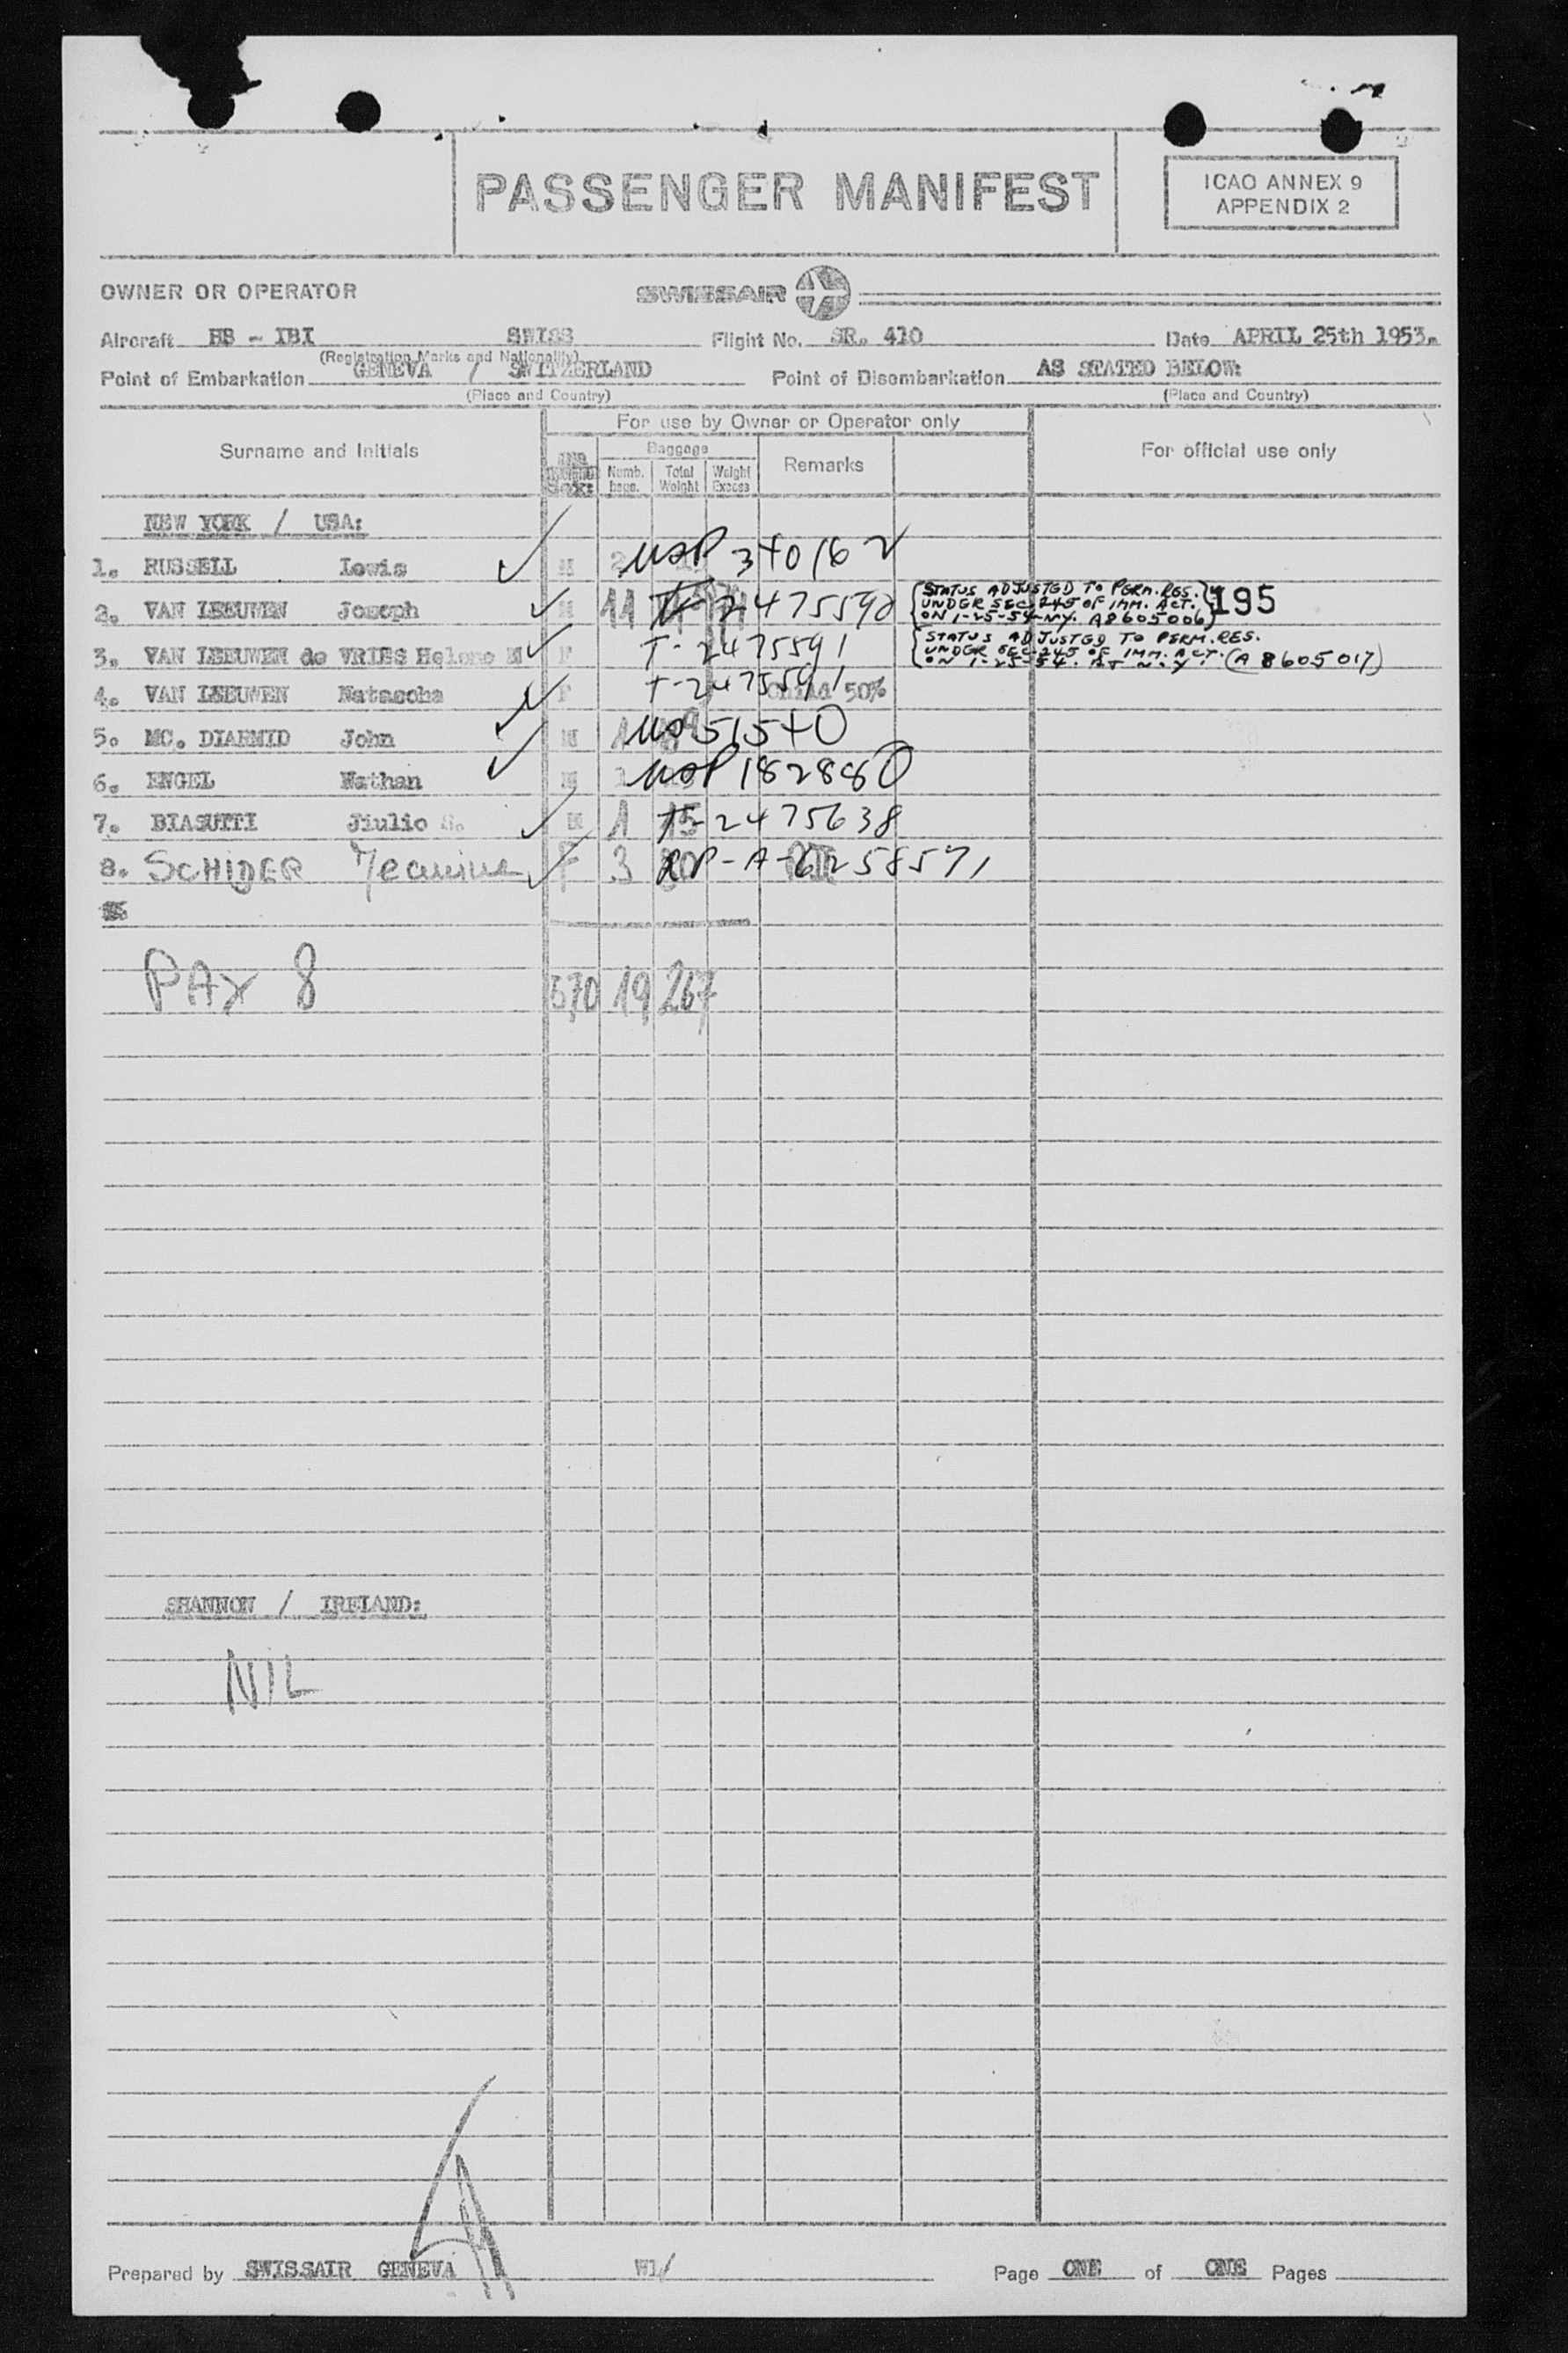 PASSENGER MANIFEST
ICAO ANNEX 9
APPENDIX 2
OWNER OR OPERATOR SWISSAIR
Aircraft HB - IBI SWISS Flight No. SR. 410 Date APRIL 25th 1953.
(Registration Marks and Nationality)
Point of Embarkation GENEVA / SWITZERLAND Point of Disembarkation AS STATED BELOW:
(Place and Country) (Place and Country)
For use by Owner or Operator only
Surname and Initials Baggage Remarks For official use only
Numb. bags. Total Weight Weight Excess
NEW YORK / USA:
1. RUSSELL Lewis M 2 USP 340162
2. VAN LEEUWEN Joseph M 11 T-2475590 (STATUS ADJUSTED TO PERM. RES. 195
UNDER SEC 245 OF IMM. ACT.
ON 1-25-54 N.Y. A8605006)
3. VAN LEEUWEN de VRIES Helene M F T-2475591 (STATUS ADJUSTED TO PERM. RES.
UNDER SEC 245 OF IMM. ACT.
ON 1-25-54. AT N.Y. (A 8605017)
4. VAN LEEUWEN Natascha F T-2475591 Child 50%
5. MC. DIARMID John M 1 51540
6. ENGEL Nathan M 1 USP 182880
7. BIASUTTI Jiulio S. M 1 15 T-2475638
8. SCHIDER Jeanine F 3 RP-A-6258571
PAX 8 570 19 267
SHANNON / IRELAND:
NIL
Prepared by SWISSAIR GENEVA W1/ Page ONE of ONE Pages